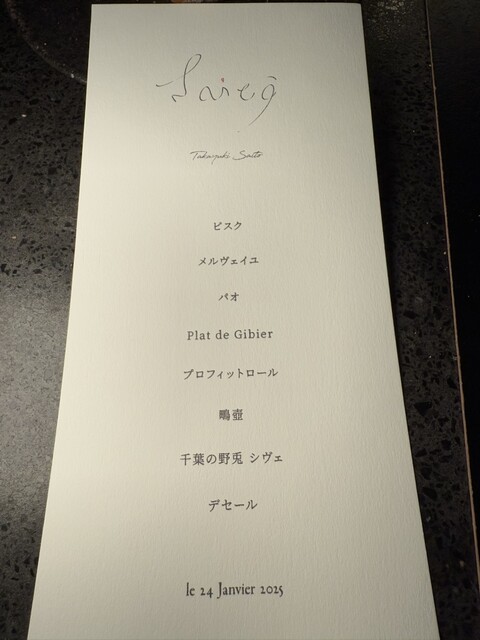 Takayuki Saito
ビスク
メルヴェイユ
パオ
Plat de Gibier
プロフィットロール
鴫壺
千葉の野兎 シヴェ
デセール
le 24 Janvier 2025